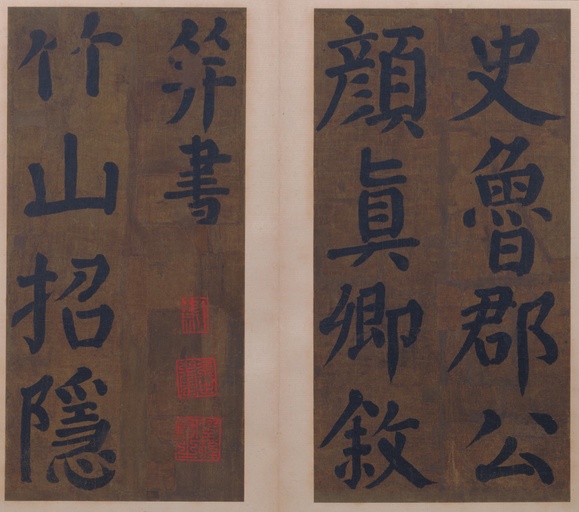 史魯郡公
顏真卿敘
笄書
竹山招隱